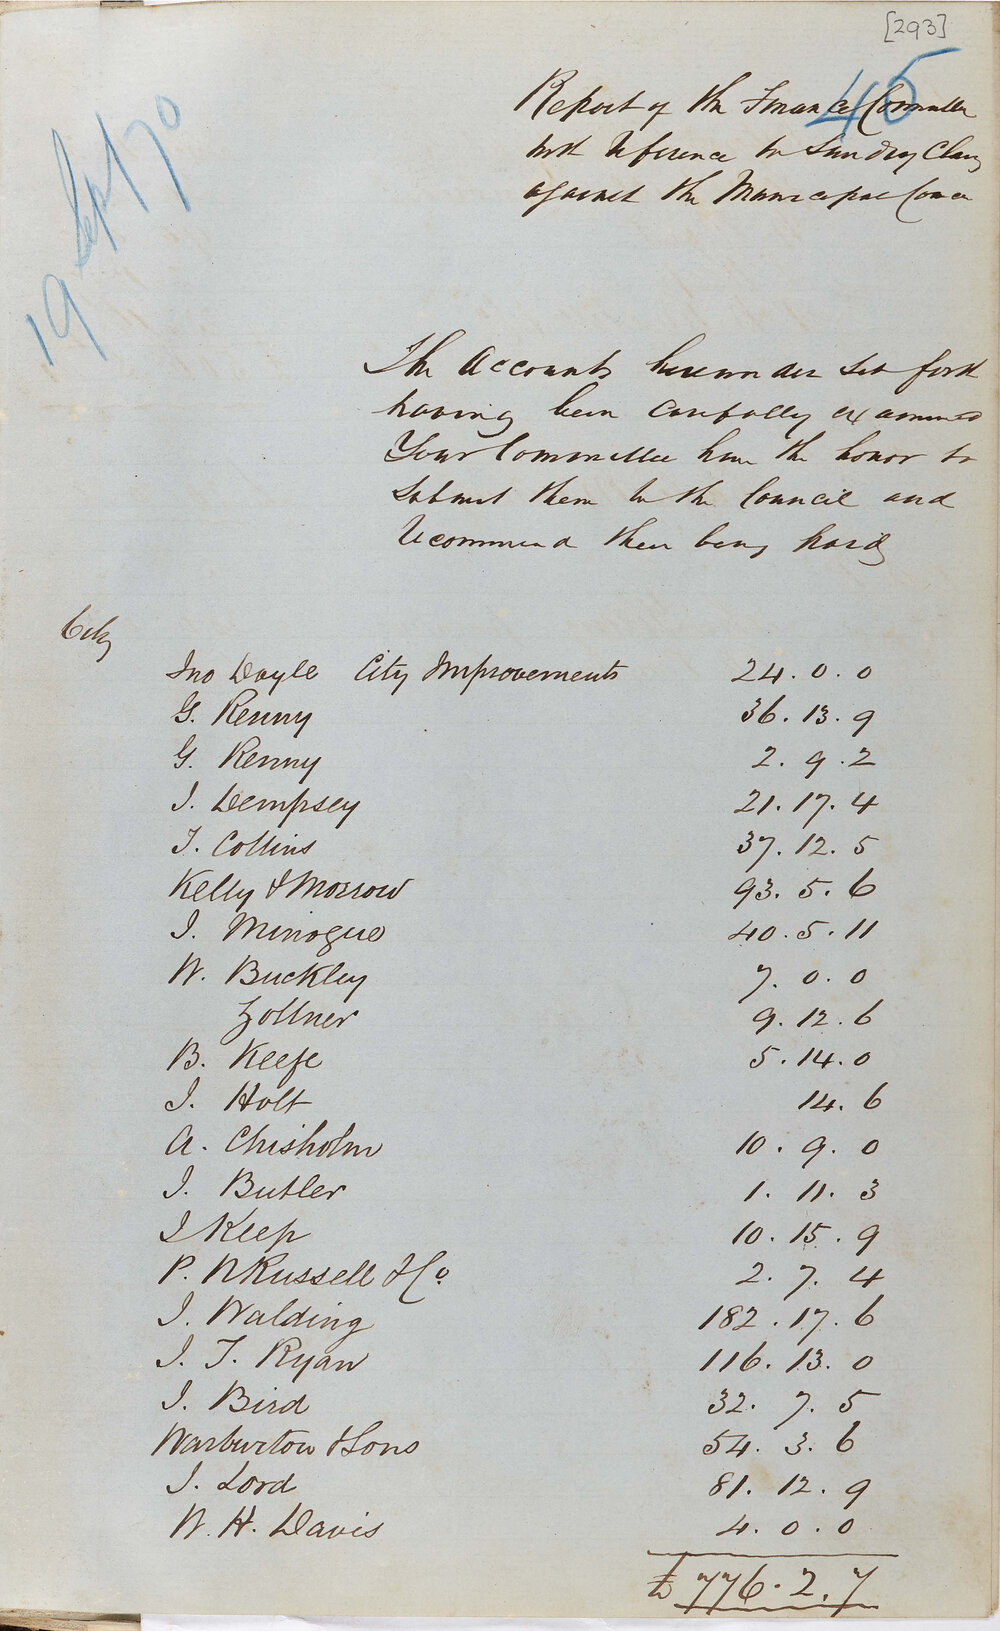 [293]
45
19 Sept 70
Report of the Finance Committee
with reference to Sundry Claims
against the Municipal Council
The Accounts hereunder set forth
having been carefully examined
Your Committee have the honor to
submit them to the Council and
recommend their being paid
City
Jno Doyle City Improvements 24. 0. 0
G. Renny 36. 13. 9
G. Renny 2. 9. 2
J. Dempsey 21. 17. 4
T. Collins 37. 12. 5
Kelly & Morrow 93. 5. 6
J. Minogue 40. 5. 11
W. Buckley 7. 0. 0
Zollner 9. 12. 6
B. Keefe 5. 14. 0
J. Holt 14. 6
A. Chisholm 10. 9. 0
J. Butler 1. 11. 3
J Keep 10. 15. 9
P. N Russell & Co. 2. 7. 4
J. Walding 182. 17. 6
J. T. Ryan 116. 13. 0
J. Bird 32. 7. 5
Warburton & Sons 54. 3. 6
J. Lord 81. 12. 9
W. H. Davis 4. 0. 0
£ 776. 2. 7